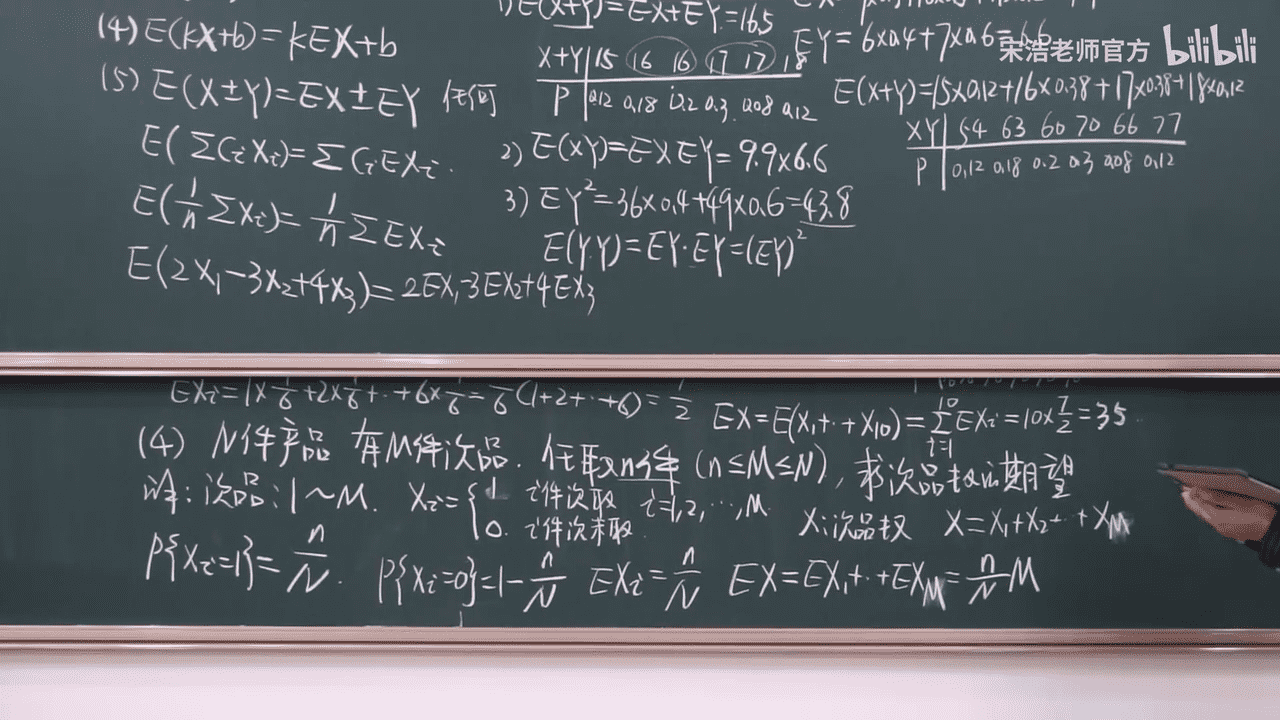 (4) E(kX+b)=kEX+b
(5) E(X±Y)=EX±EY 任何
E(ΣCiXi)=ΣCiEXi.
E(1/nΣXi)=1/nΣEXi
E(2X1-3X2+4X3)=2EX1-3EX2+4EX3
1) E(X+Y)=EX+EY=16.5
X+Y 15 16 16 17 17 18
P 0.12 0.18 0.2 0.3 0.08 0.12
2) E(XY)=EXEY=9.9×6.6
3) EY²=36×0.4+49×0.6=43.8
E(Y·Y)=EY·EY=(EY)²
EY=6×0.4+7×0.6=6.6
宋浩老师官方 bilibili
E(X+Y)=15×0.12+16×0.38+17×0.38+18×0.12
XY 54 63 60 70 66 77
P 0.12 0.18 0.2 0.3 0.08 0.12
EXi=1×1/6+2×1/6+··+6×1/6=1/6(1+2+··+6)=
EX=E(X1+··+X10)=Σ(i=1→10)EXi=10×7/2=35
(4) N件产品 有M件次品. 任取n件 (n≤M≤N), 求次品数的期望
次品: 1~M. Xi={1 i件次取 i=1,2,···,M.
0. i件次未取.
X:次品数 X=X1+X2+··+XM
P{Xi=1}=n/N. P{Xi=0}=1-n/N EXi=n/N EX=EX1+··+EXM=n/N M